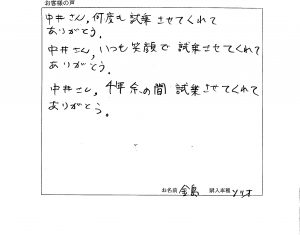 お客様の声
中井さん,何度も試乗させてくれて
ありがとう。
中井さん,いつも笑顔で試乗させてくれて
ありがとう。
中井さん,4年余の間試乗させてくれて
ありがとう。
お名前 金島 購入車種 ソリオ